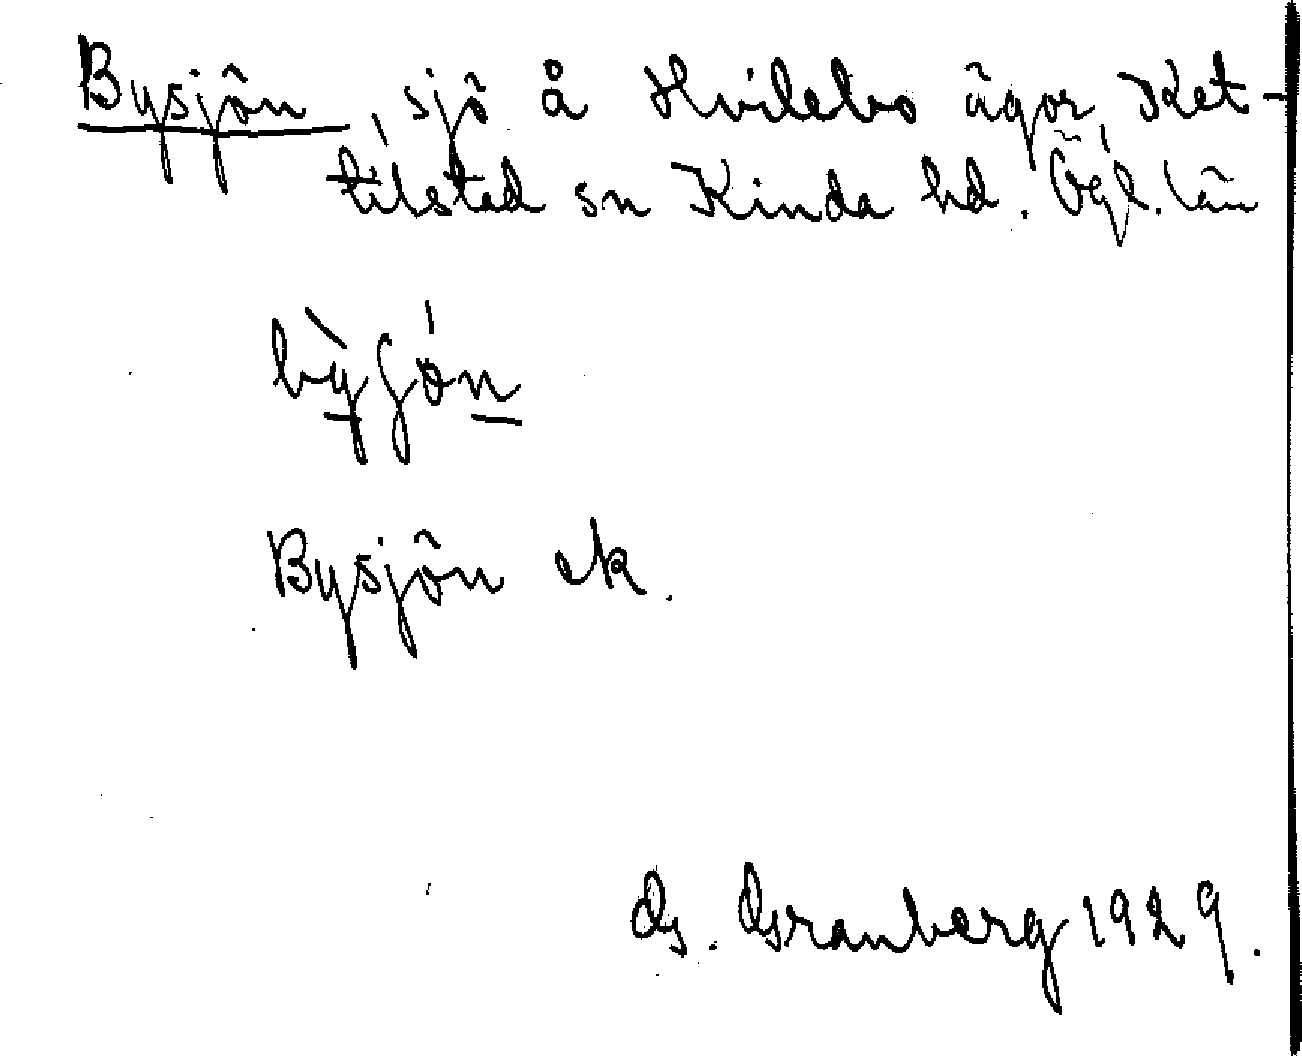 Bysjön, sjö å Hvilebo ägor, Ket-
tilstad sn Kinda hd. Ögl. län
Bysjön ek.
G. Granberg 1929.